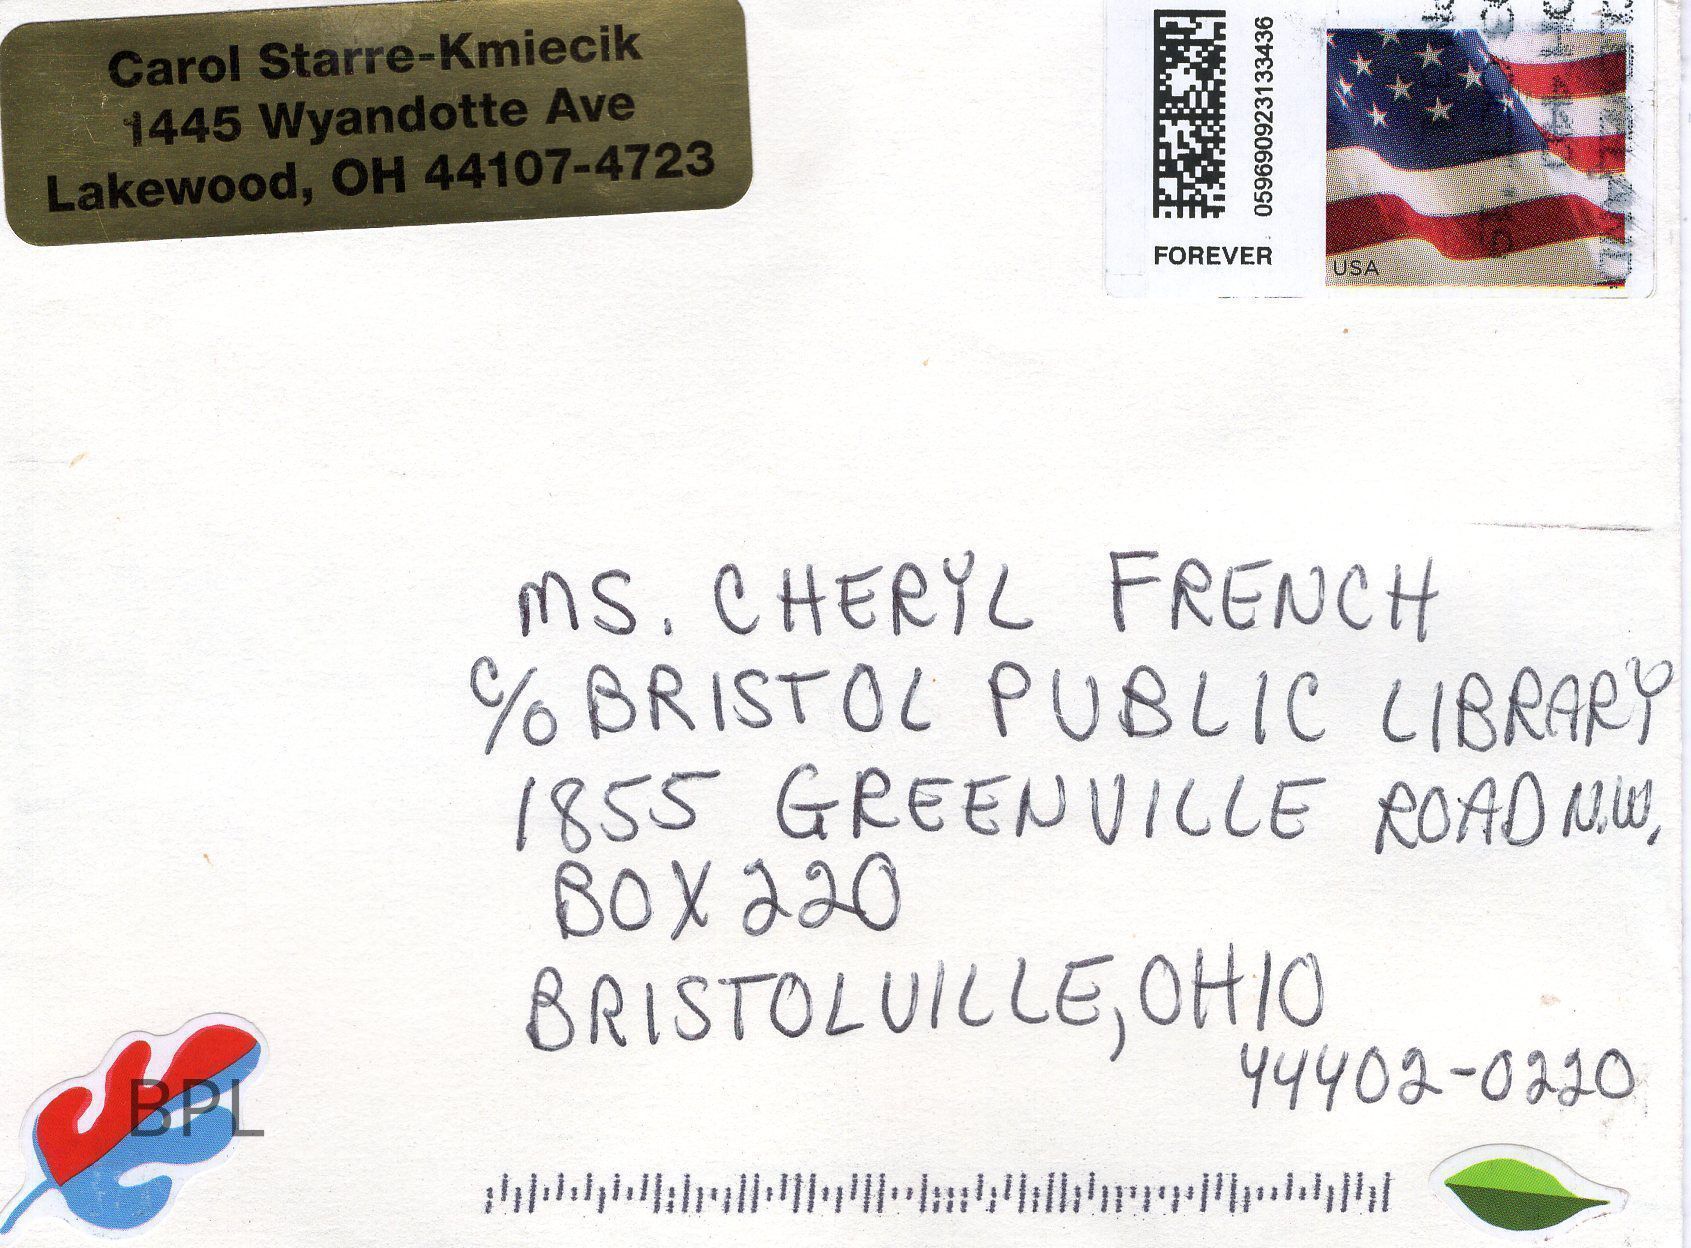 Carol Starre-Kmiecik
1445 Wyandotte Ave
Lakewood, OH 44107-4723
0596909231334​36
FOREVER
USA
MS. CHERYL FRENCH
c/o BRISTOL PUBLIC LIBRARY
1855 GREENVILLE ROAD N.W.
BOX 220
BRISTOLVILLE, OHIO
44402-0220
BPL